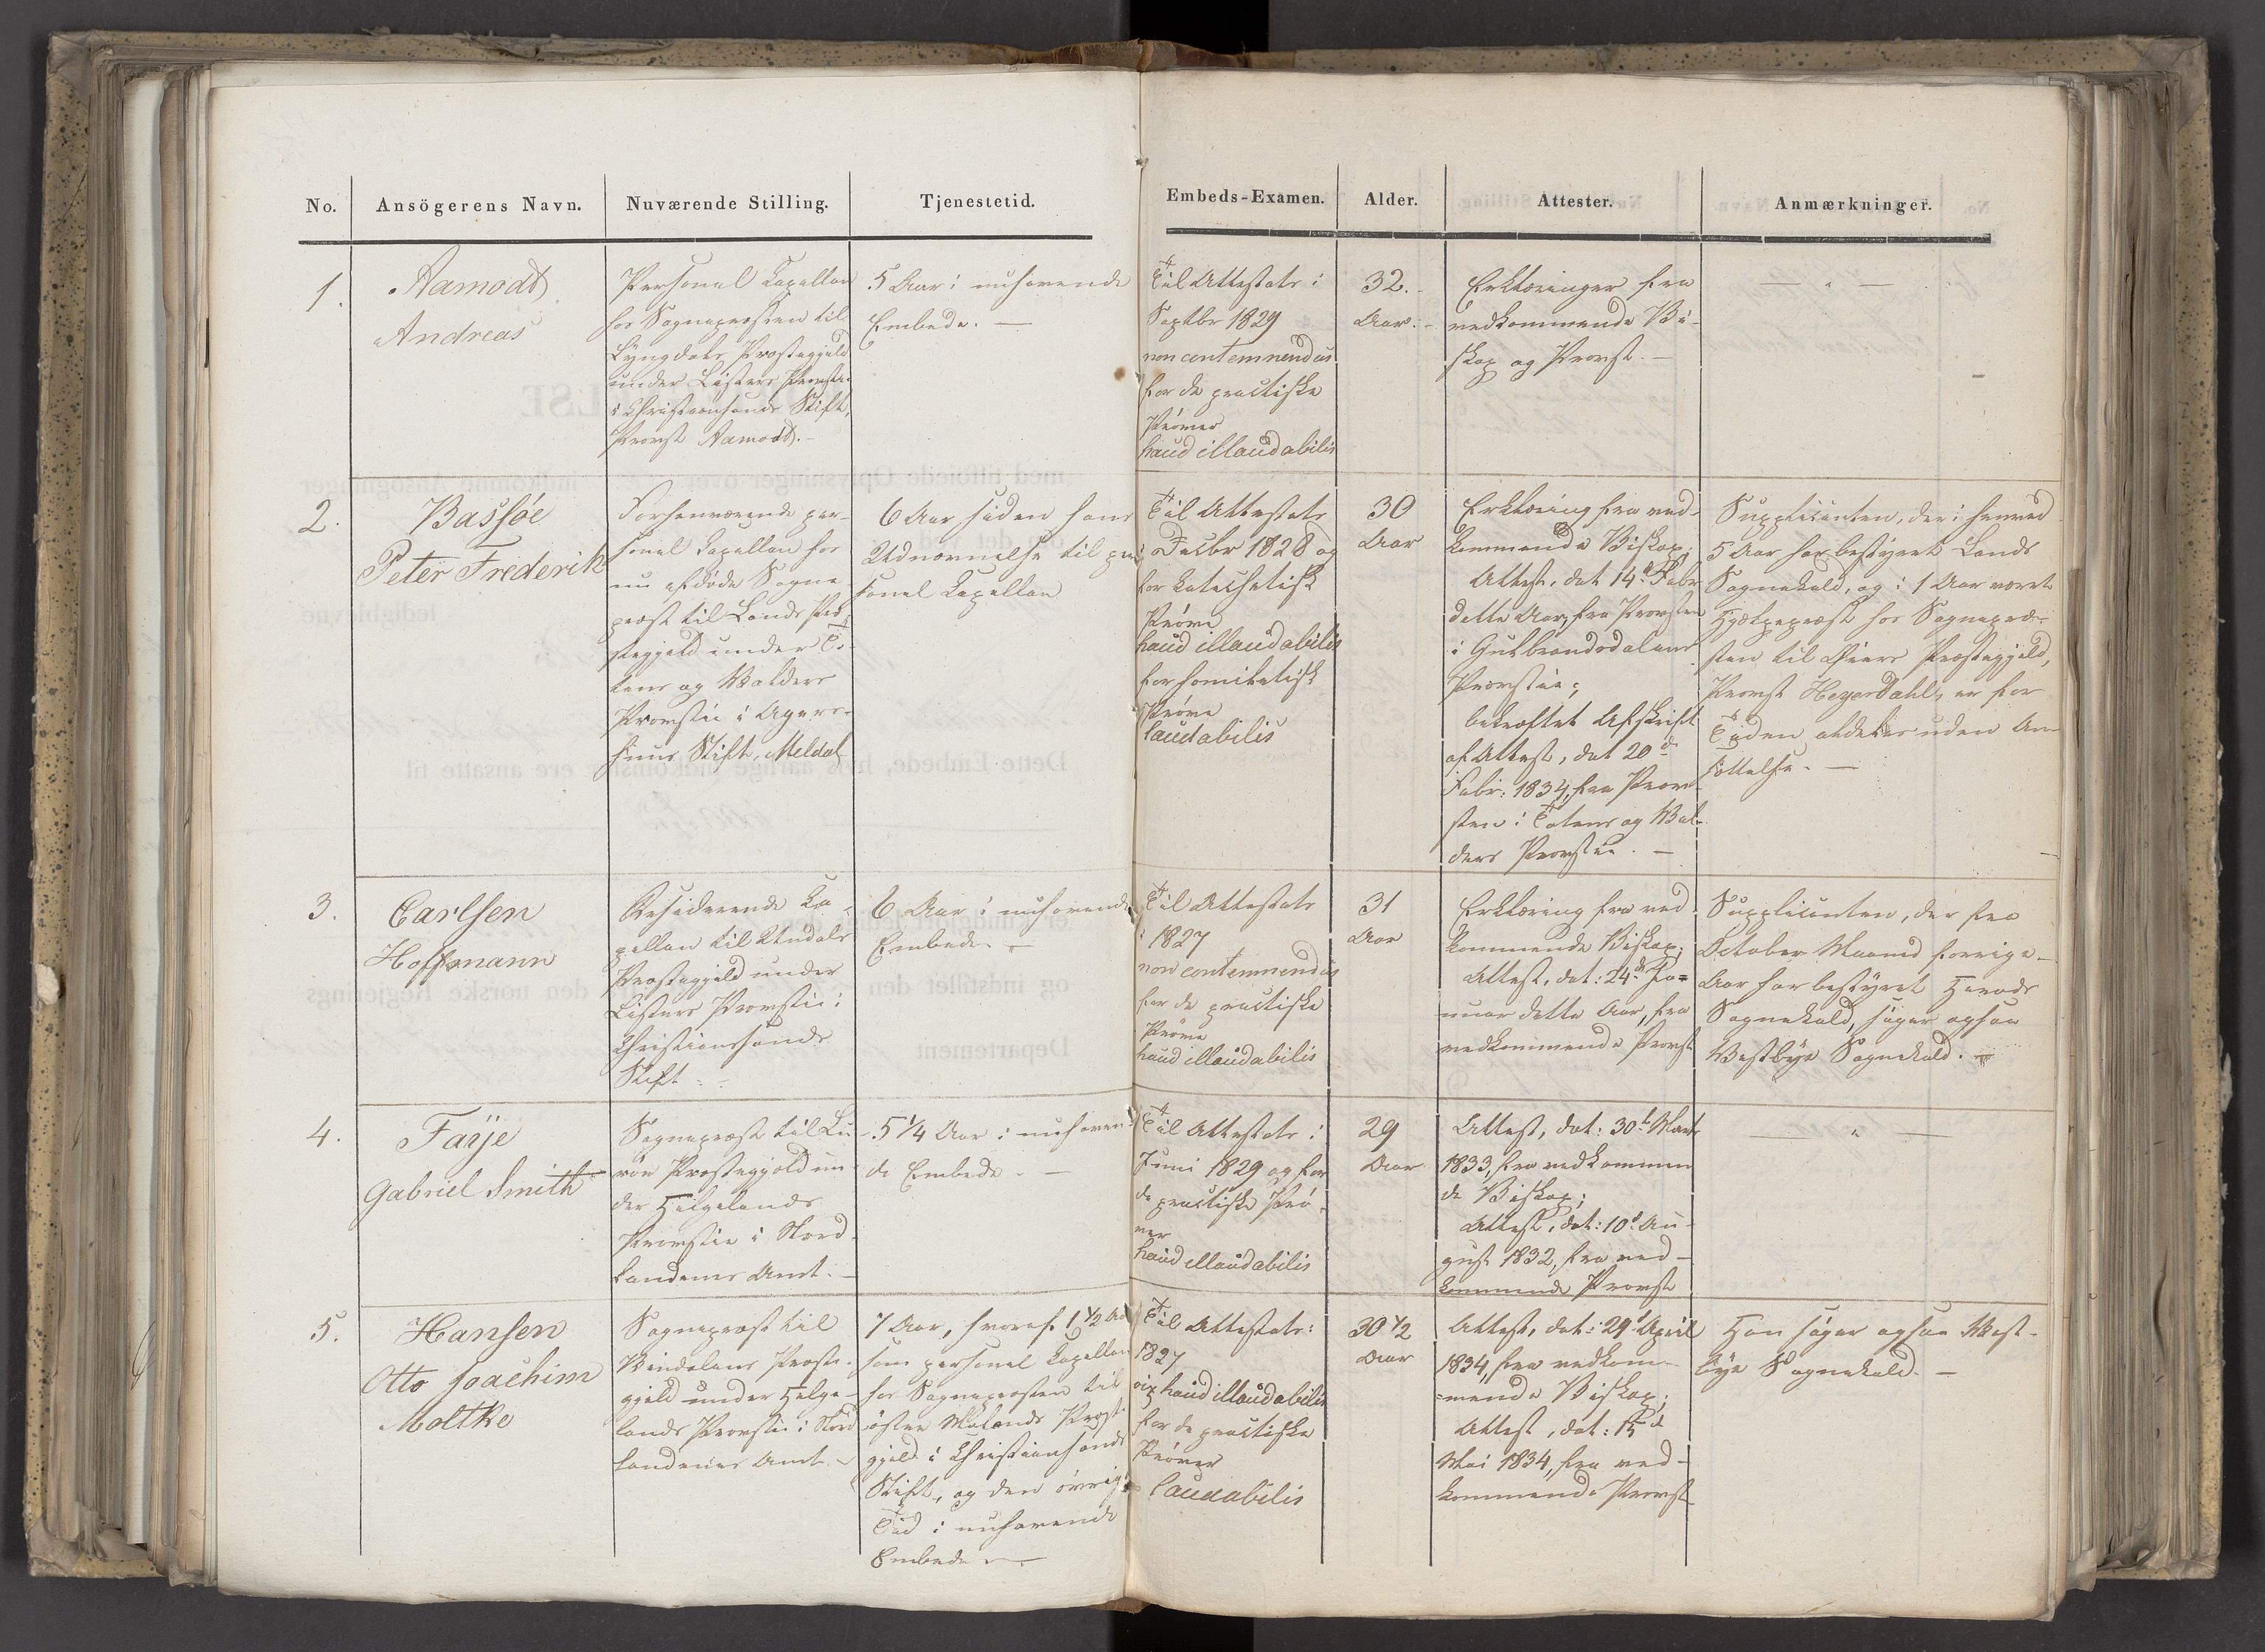 No.
Ansögerens Navn.
Nuværende Stilling.
Tjenestetid.
Embeds-Examen.
Alder.
Attester.
Anmærkninger.
1.
Aamodt
Andreas
Personel Capellan
hos Sognepræsten til
Lyngdals Præstegjeld
under Listers Provstie
i Christiansands Stift,
Provst Aamodt.
5 Aar i nuhavende
Embede. —
Til Attestats i
Septbr 1829
non contemnendus
for de practiske
Prøver
haud illaudabilis
32.
Aar.
Erklæringer fra
vedkommende Bi-
skop og Provst. —
— " —
2.
Bassøe
Peter Frederik
Forhenværende per-
sonel Capellan hos
nu afdøde Sogne-
præst til Lands Præ-
stegjeld under To-
tens og Valders
Provstie i Agers-
huus Stift, Meldal
6 Aar siden hans
Udnævnelse til per-
sonel Capellan
Til Attestats
i Decbr 1828 og
for catechetisk
Prøve
haud illaudabilis
for homiletisk
Prøve
laudabilis
30
Aar
Erklæring fra ved-
kommende Biskop;
Attest, dat. 14de Febr
dette Aar, fra Provsten
i Gulbrandsdalens
Provstie;
bekræftet Afskrift
af Attest, dat 20de
Febr: 1834, fra Prov-
sten i Totens og Val-
ders Provstie. —
Supplicanten, der i henved
5 Aar har bestyret Lands
Sognekald, og i 1 Aar været
Hjelpepræst hos Sognepræ-
sten til Øiers Præstegjeld,
Provst Heyerdahl, er for
Tiden aldeles uden An-
sættelse. —
3.
Carlsen
Hoffmann
Residerende Ca-
pellan til Undals
Præstegjeld under
Listers Provstie i
Christianssands
Stift. —
6 Aar i nuhavende
Embede. —
Til Attestats
i 1827
non contemnendus
for de practiske
Prøver
haud illaudabilis
31
Aar
Erklæring fra ved-
kommende Biskop;
Attest, dat: 24de Ja-
nuar dette Aar, fra
vedkommende Provst
Supplicanten, der fra
October Maaned forrige
Aar har bestyret Herads
Sognekald, søger ogsaa
Vestbye Sognekald. —
4.
Faÿe
Gabriel Smith
Sognepræst til Lu-
røe Præstegjeld un-
der Helgelands
Provstie i Nord-
landenes Amt. —
5 1/4 Aar i nuhaven-
de Embede. —
Til Attestats i
Juni 1829 og for
de practiske Prø-
ver
haud illaudabilis
29
Aar
Attest, dat: 30te Marts
1833, fra vedkommen
de Biskop;
Attest, dat: 10de Au-
gust 1832, fra ved-
kommende Provst
— " —
5.
Hansen
Otto Joachim
Moltke
Sognepræst til
Bindalens Præste-
gjeld under Helge-
lands Provstie i Nord
landenes Amt —
7 Aar, hvoraf 1 1/2 Aar
som personel Capellan
hos Sognepræsten til
østre Molands Præste-
gjeld i Christiansands
Stift, og den øvrige
Tid i nuhavende
Embede. —
Til Attestats:
1827
vix haud illaudabilis
for de practiske
Prøver
laudabilis
30 1/2
Aar
Attest, dat: 29de April
1834, fra vedkom-
mende Biskop;
Attest, dat: 15de
Mai 1834, fra ved-
kommende Provst
Han søger ogsaa Vest-
bye Sognekald. —